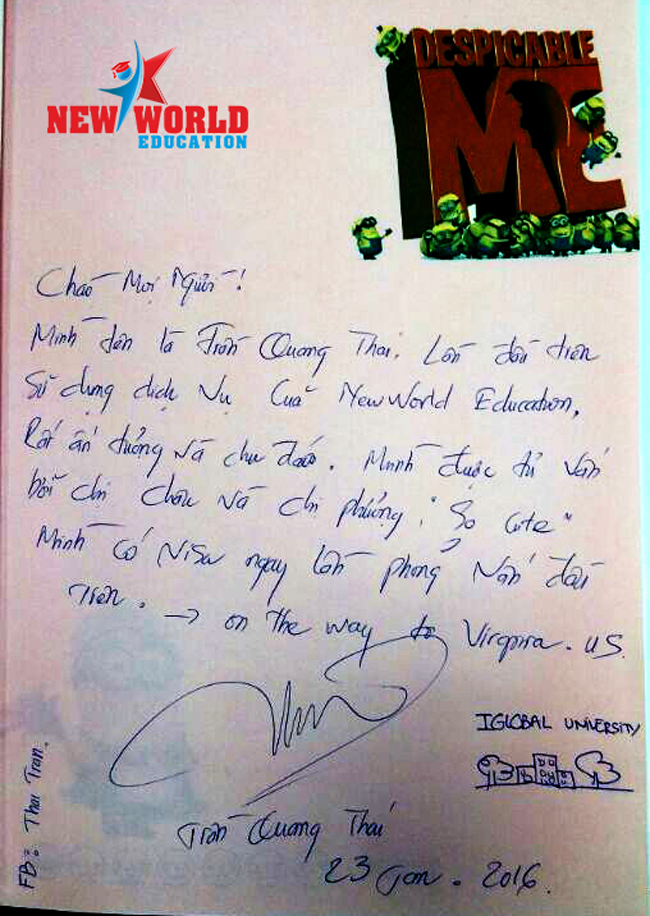 NEW WORLD
EDUCATION
DESPICABLE
ME
Chào Mọi Người!
Mình tên là Trần Quang Thái. Lần đầu tiên
Sử dụng dịch vụ của New World Education,
Rất ấn tượng và chu đáo. Mình được tư vấn
bởi chị Châu và chị Phượng, "So cute"
Mình có Visa ngay lần phỏng vấn đầu
Tiên. → on the way to Virginia. US.
IGLOBAL UNIVERSITY
FB: Thai Tran.
Trần Quang Thái
23 Jan. 2016.